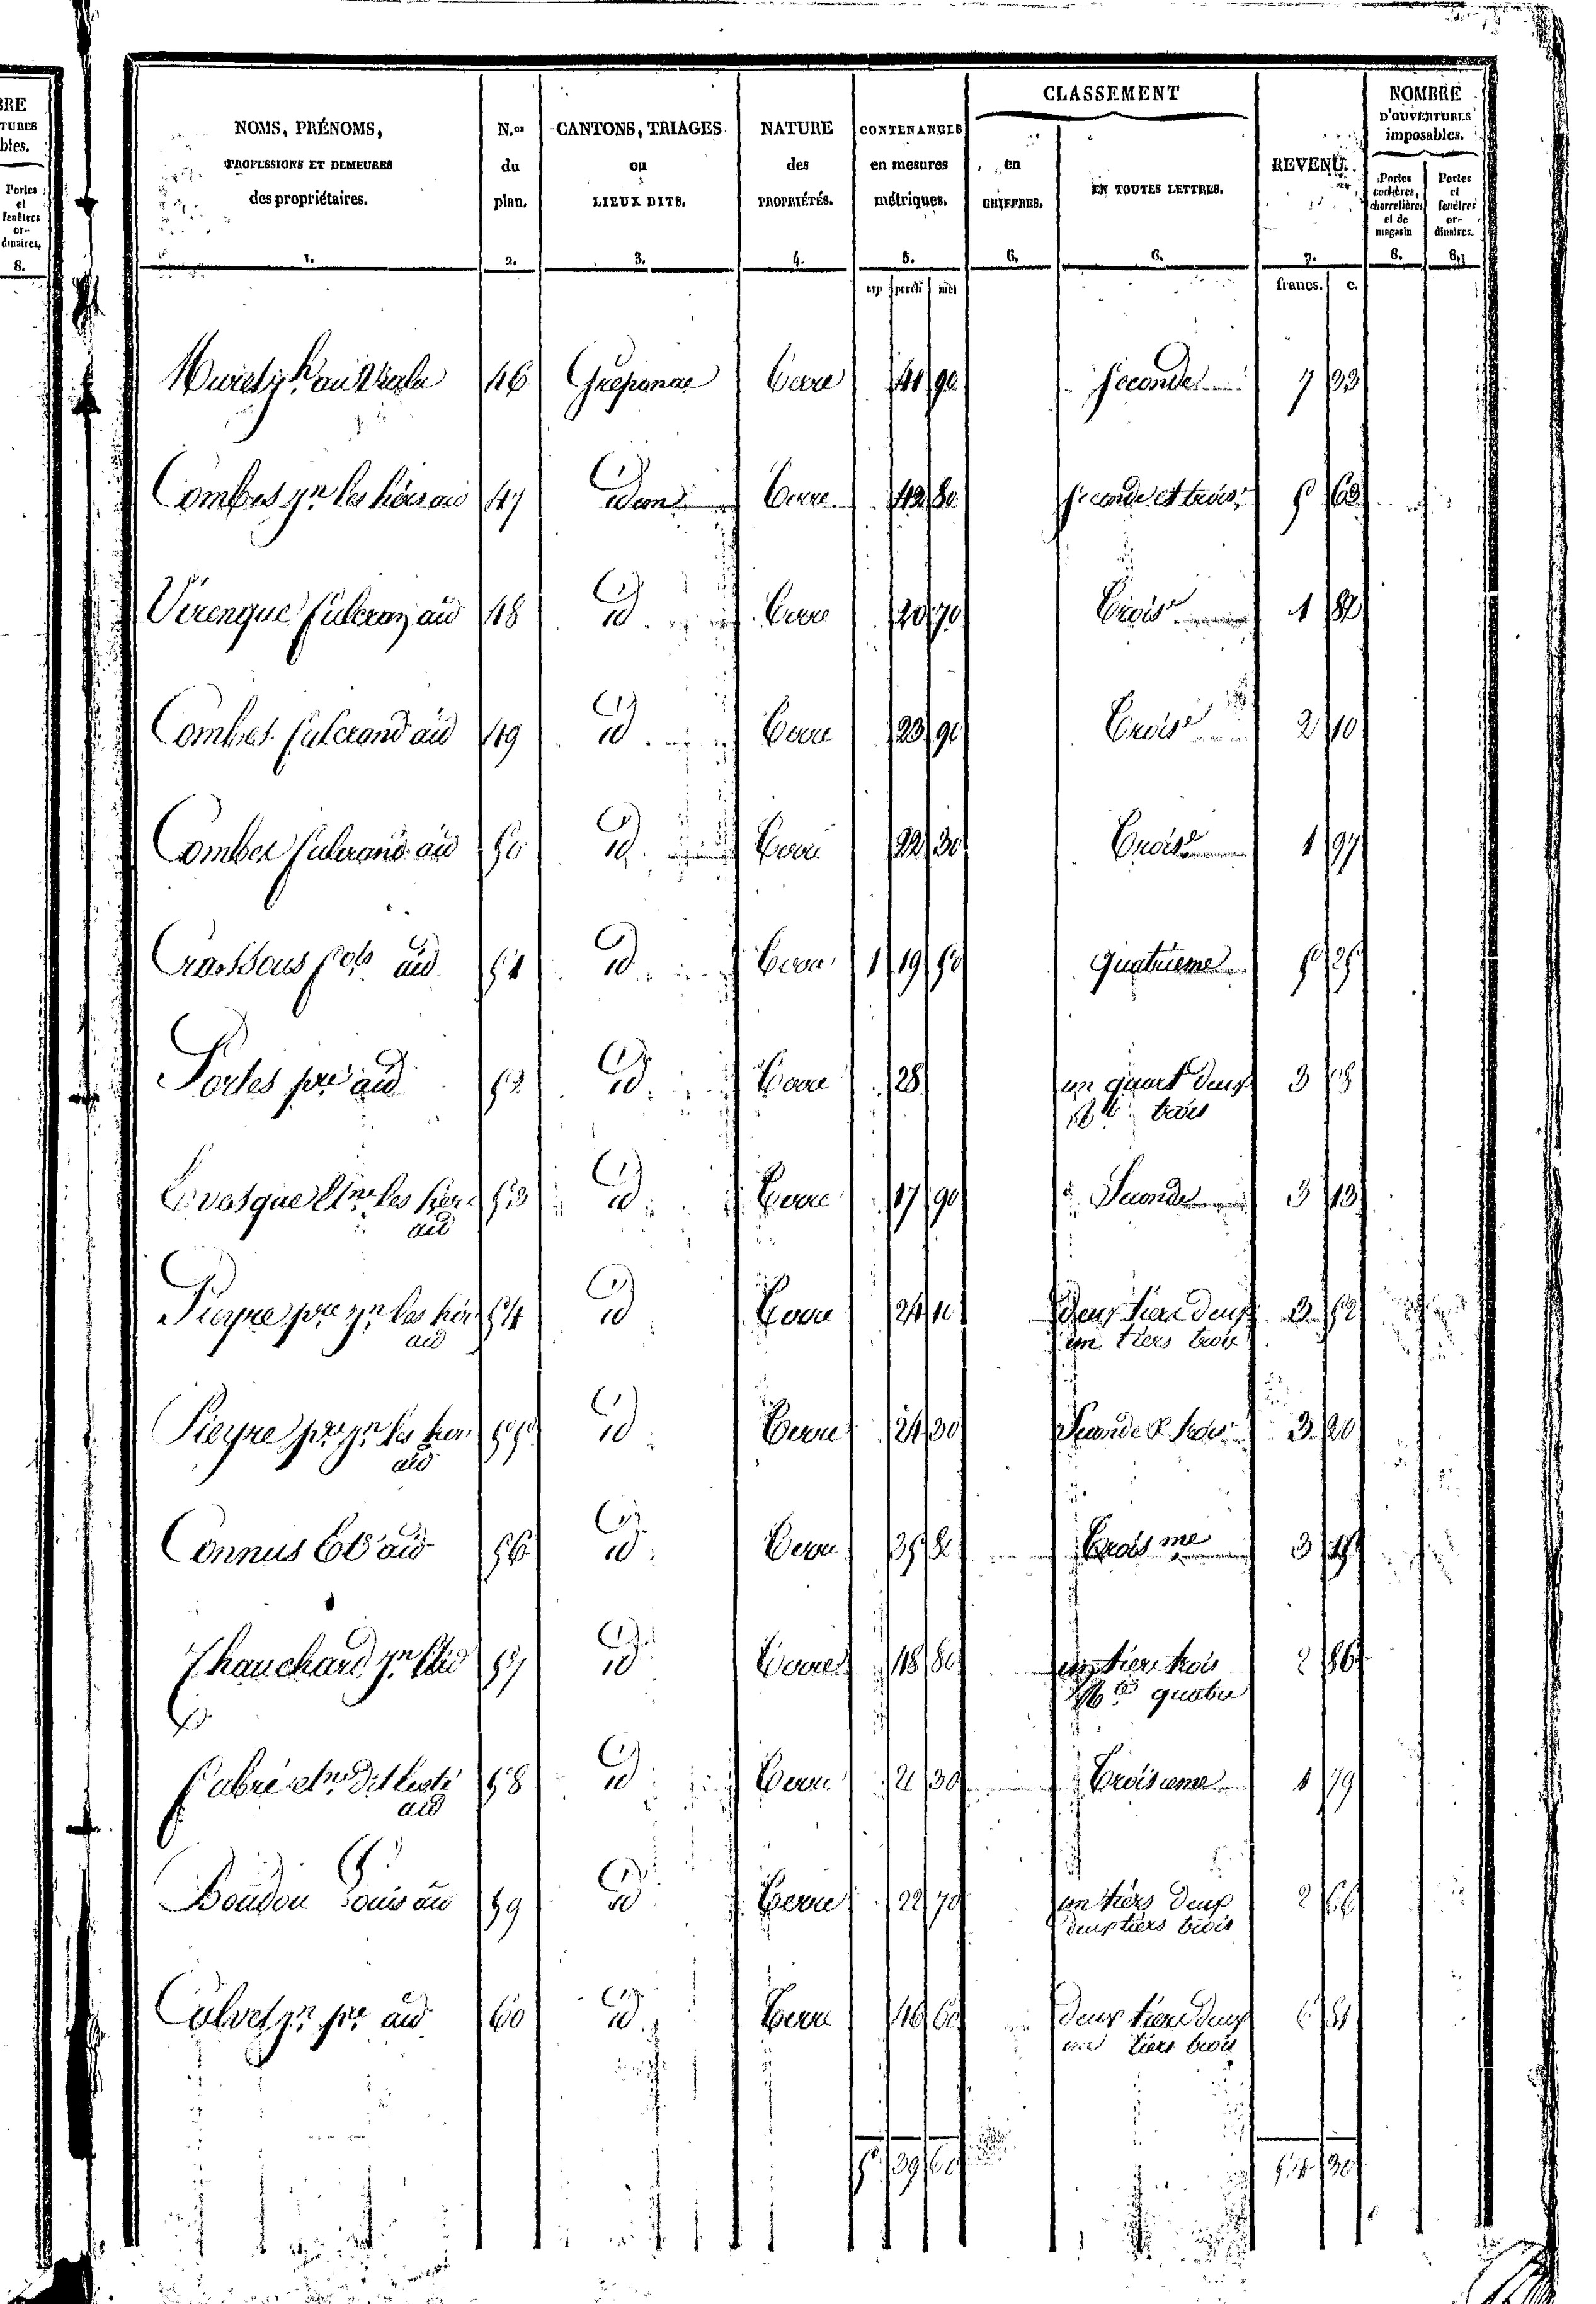 BRE
TURES
bles.
Portes
et
fenêtres
or-
dinaires.
8.
NOMS, PRÉNOMS,
PROFESSIONS ET DEMEURES
des propriétaires.
1.
N.os
du
plan.
2.
CANTONS, TRIAGES
ou
LIEUX DITS.
3.
NATURE
des
PROPRIÉTÉS.
4.
CONTENANCES
en mesures
métriques.
5.
arp perch met
CLASSEMENT
en
CHIFFRES.
6.
EN TOUTES LETTRES.
6.
REVENU.
7.
francs. c.
NOMBRE
D'OUVERTURES
imposables.
Portes
cochères,
charretières
et de
magasin
8.
Portes
et
fenêtres
or-
dinaires.
8.
46 Terre 41 90 Seconde 7 33
Combes jn les hérs au 47 idem Terre 42 80 Seconde et trois
Virenque fulcran au 48 id Terre 20 70 Trois 1 82
Combes fulcrand au 49 id Terre 23 90 Trois 2 10
Combes fulcrand au 50 id Terre 22 30 Trois 1 97
Crassous au 51 id Terre 1 19 50 quatrieme 5 25
Portes pre au 52 id Terre 28 un quart deux 3
trois
les her 53 id Terre 17 90 Seconde 3 13
au
Pieyre pre jn les hér 54 id Terre 24 10 deux tiers deux 3 52
au un tiers trois
Pieyre pre jn les her 55 id Terre 24 30 Seconde & trois 3 20
au
Connus au 56 id Terre 35 80 Trois me 3
57 id Terre 48 80 un tiers trois 2 86
quatre
fabre 58 id Terre 21 30 Troisieme 1 79
au
Boudou Louis au 59 id Terre 22 70 un tiers deux 2 66
deux tiers trois
Calvet jn pre au 60 id Terre 46 60 deux tiers deux 6 81
un tiers trois
5 39 60 30